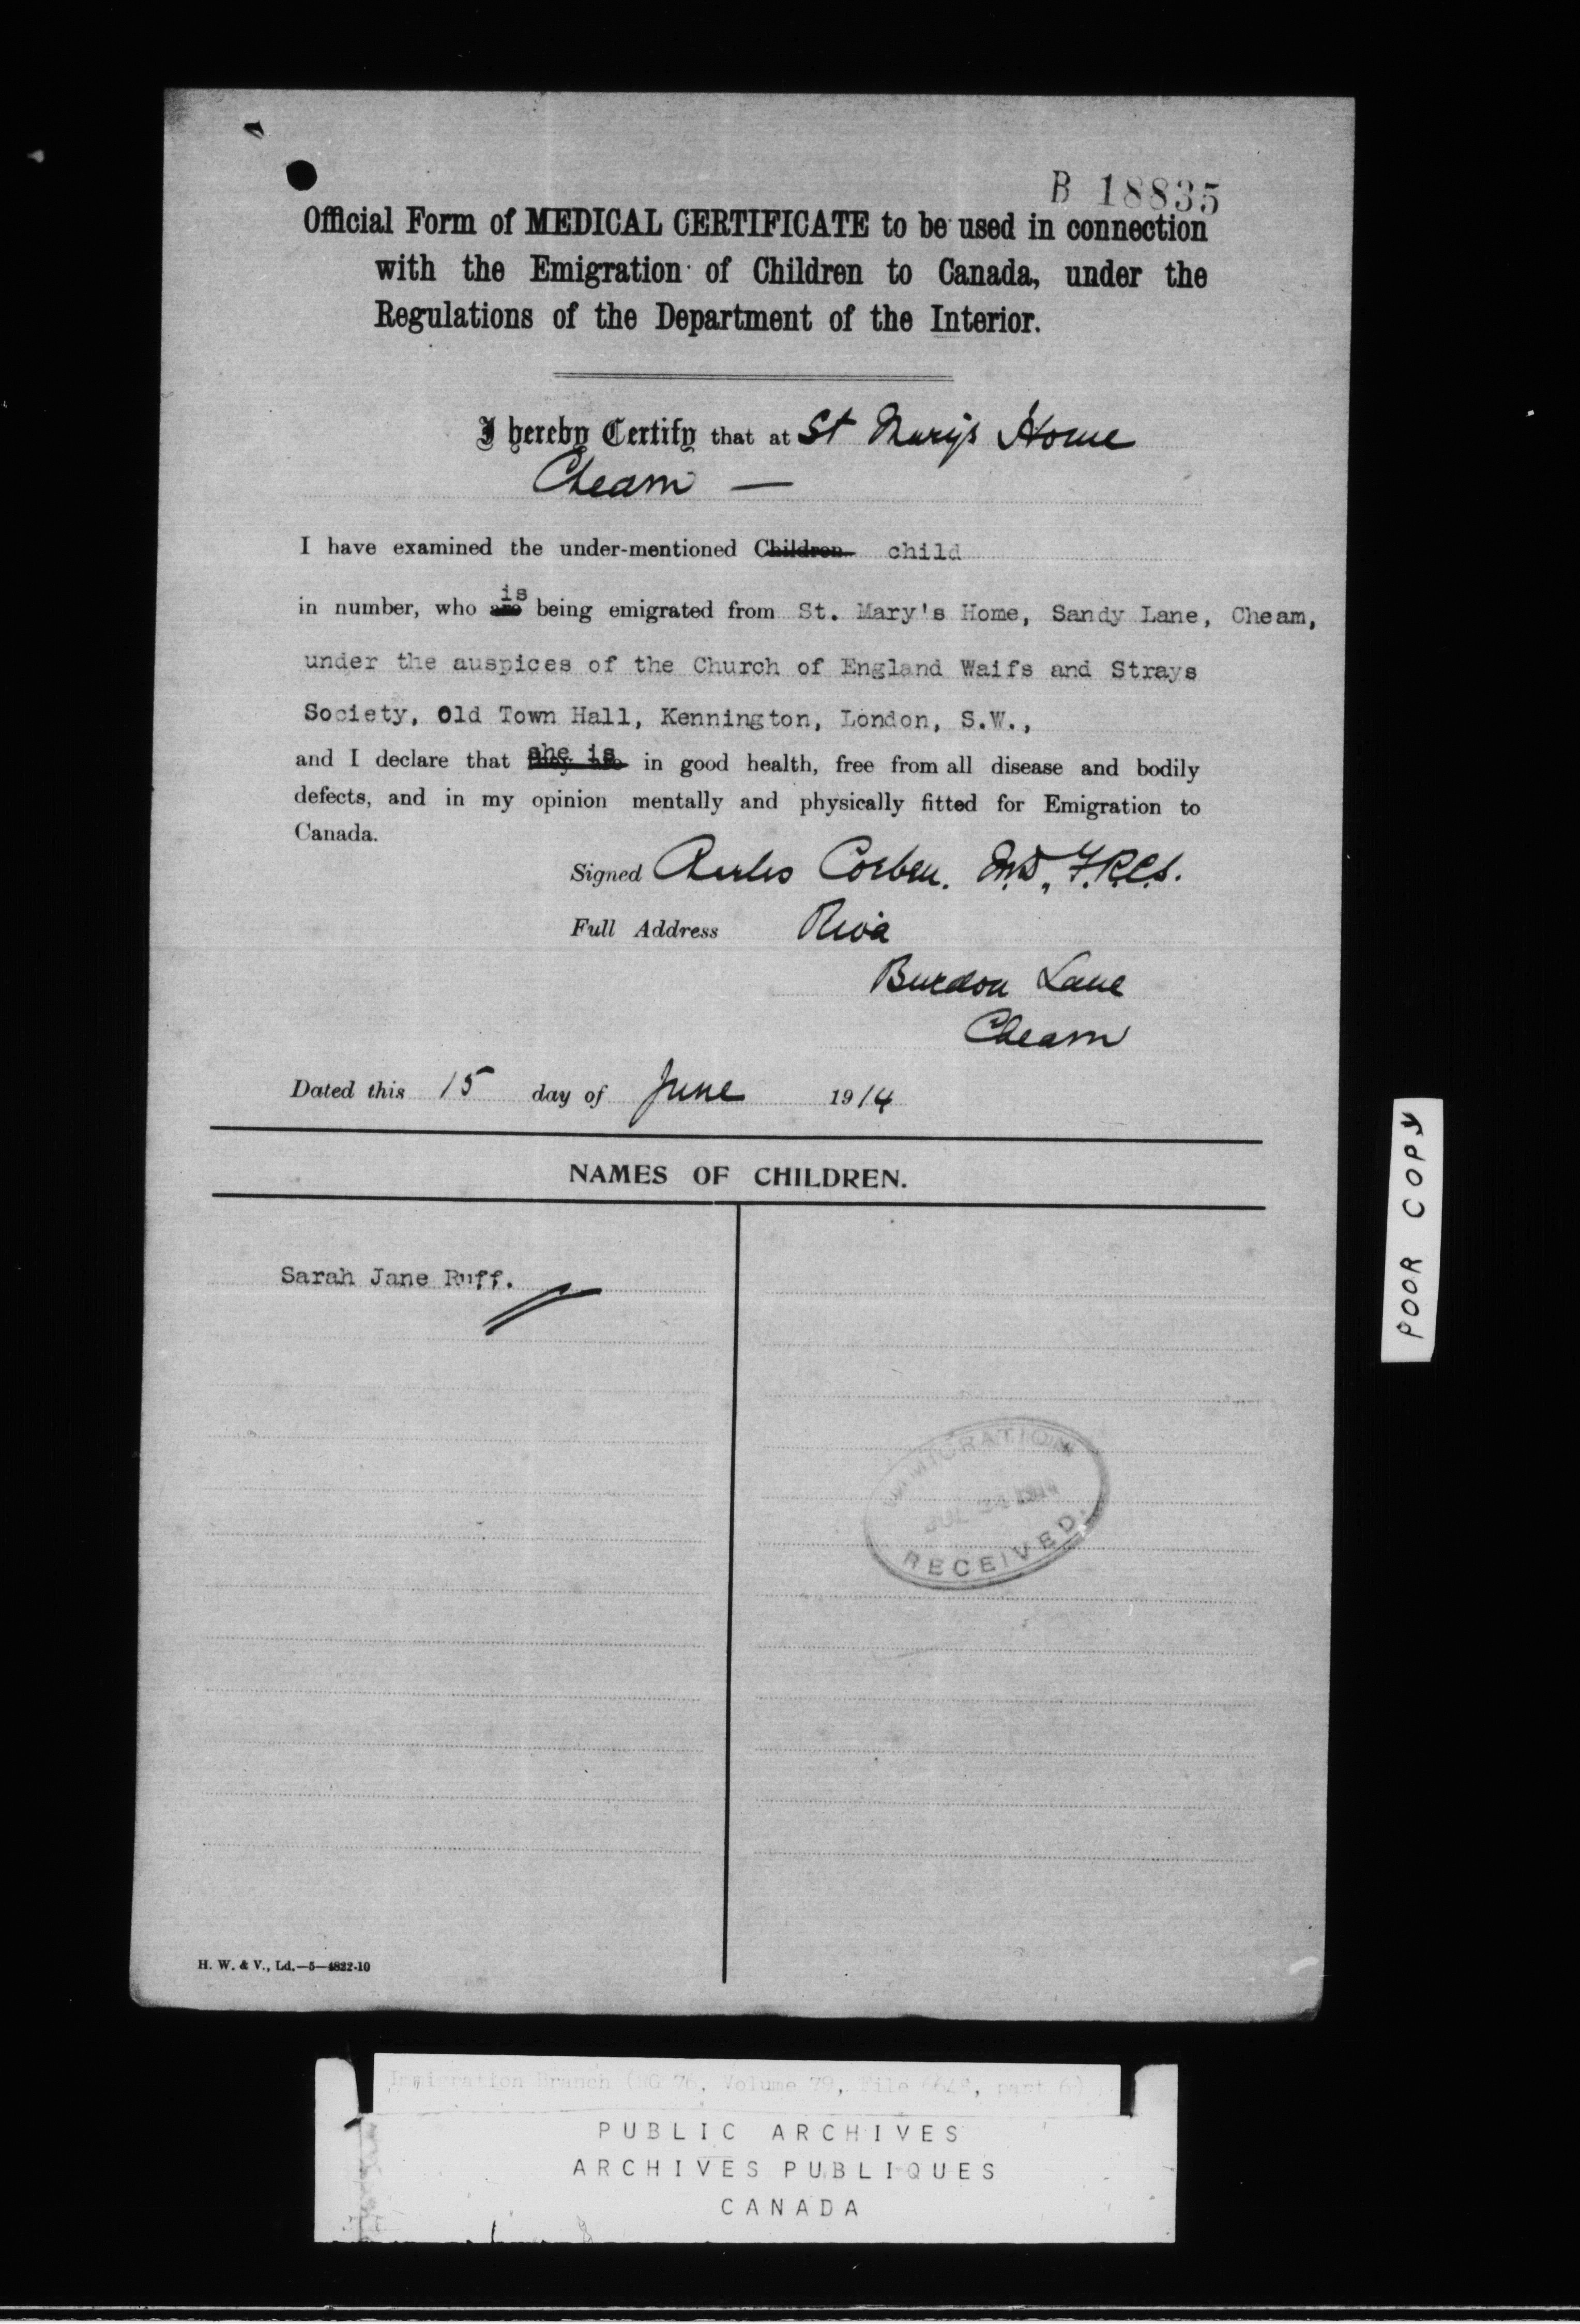 B 18835
Official Form of MEDICAL CERTIFICATE to be used in connection
with the Emigration of Children to Canada, under the
Regulations of the Department of the Interior.
I hereby Certify that at St Mary's Home
Cheam —
I have examined the under-mentioned Children child
in number, who are is being emigrated from St. Mary's Home, Sandy Lane, Cheam,
under the auspices of the Church of England Waifs and Strays
Society, Old Town Hall, Kennington, London, S.W.,
and I declare that they are she is in good health, free from all disease and bodily
defects, and in my opinion mentally and physically fitted for Emigration to
Canada.
Signed Charles Corben. M.D., F.R.C.S.
Full Address Riva
Burdon Lane
Cheam
Dated this 15 day of June 1914
NAMES OF CHILDREN.
Sarah Jane Ruff.
IMMIGRATION
JUL 1914
RECEIVED.
H. W. & V., Ld.—5—4822-10
POOR COPY
Immigration Branch (RG 76, Volume 79, File 648, part 6)
PUBLIC ARCHIVES
ARCHIVES PUBLIQUES
CANADA